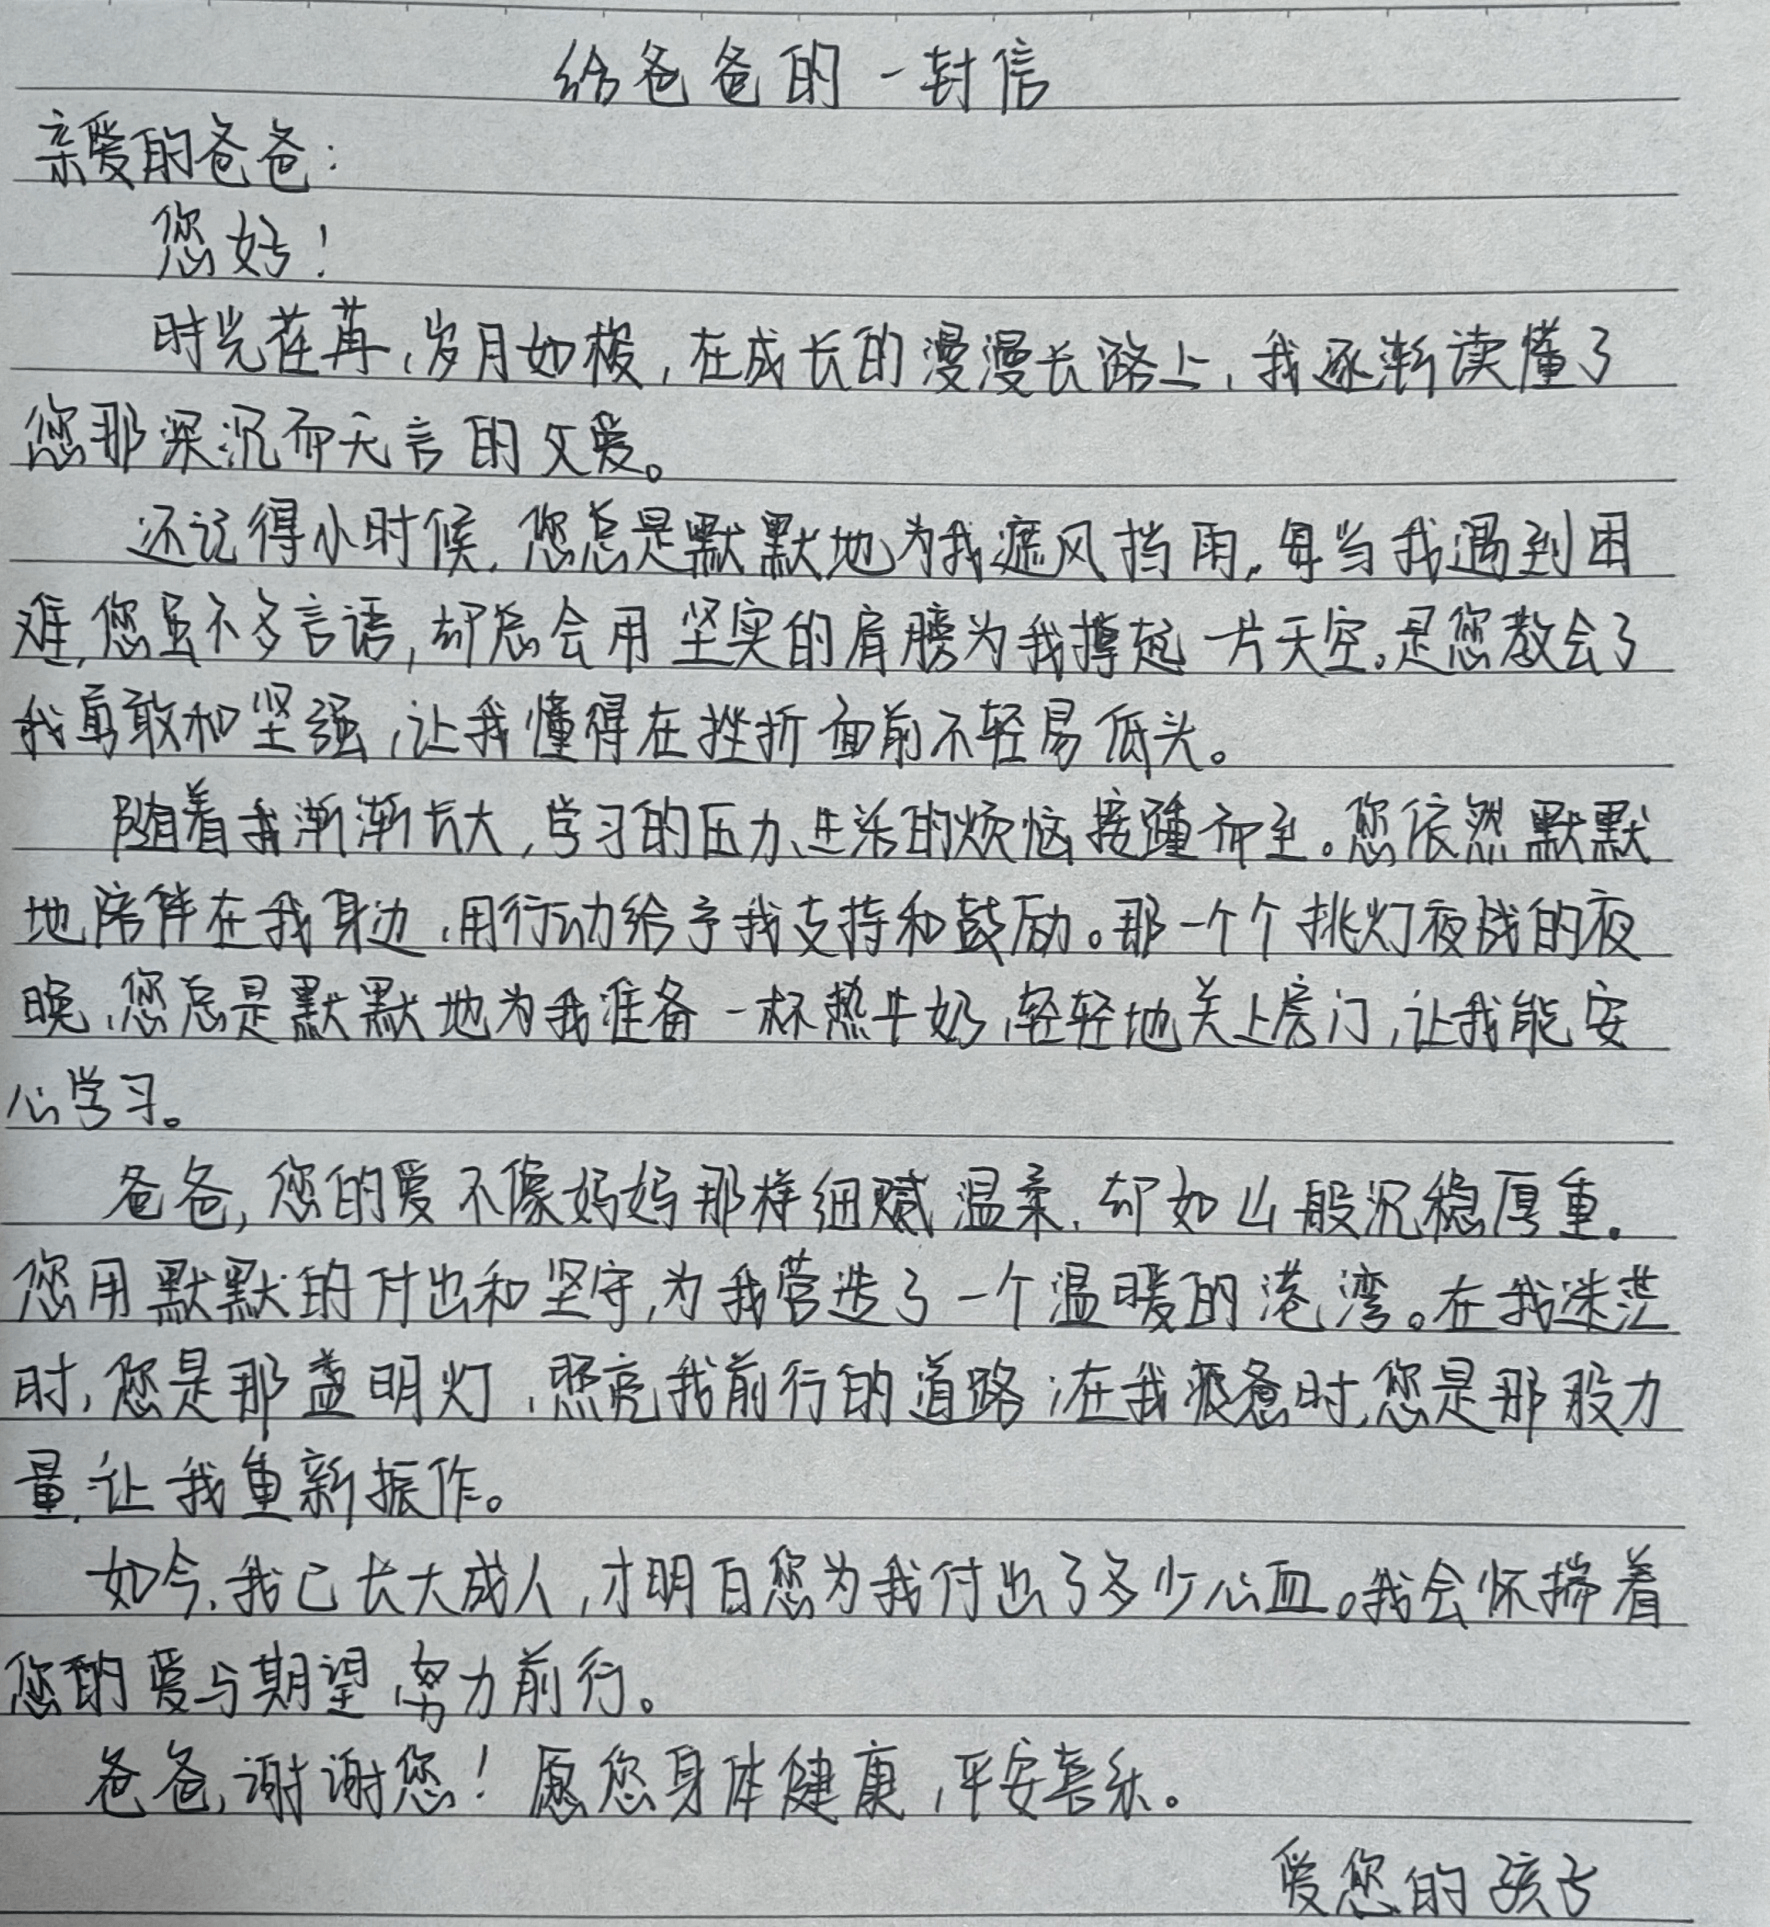 给爸爸的一封信
亲爱的爸爸：
您好！
时光荏苒，岁月如梭，在成长的漫漫长路上，我逐渐读懂了
您那深沉而无言的父爱。
还记得小时候，您总是默默地为我遮风挡雨，每当我遇到困
难，您虽不多言语，却总会用坚实的肩膀为我撑起一片天空。是您教会了
我勇敢和坚强，让我懂得在挫折面前不轻易低头。
随着我渐渐长大，学习的压力、生活的烦恼接踵而至。您依然默默
地陪伴在我身边，用行动给予我支持和鼓励。那一个个挑灯夜战的夜
晚，您总是默默地为我准备一杯热牛奶，轻轻地关上房门，让我能安
心学习。
爸爸，您的爱不像妈妈那样细腻温柔，却如山般沉稳厚重。
您用默默的付出和坚守，为我营造了一个温暖的港湾。在我迷茫
时，您是那盏明灯，照亮我前行的道路；在我疲惫时，您是那股力
量，让我重新振作。
如今，我已长大成人，才明白您为我付出了多少心血。我会怀揣着
您的爱与期望，努力前行。
爸爸，谢谢您！愿您身体健康，平安喜乐。
爱您的孩子